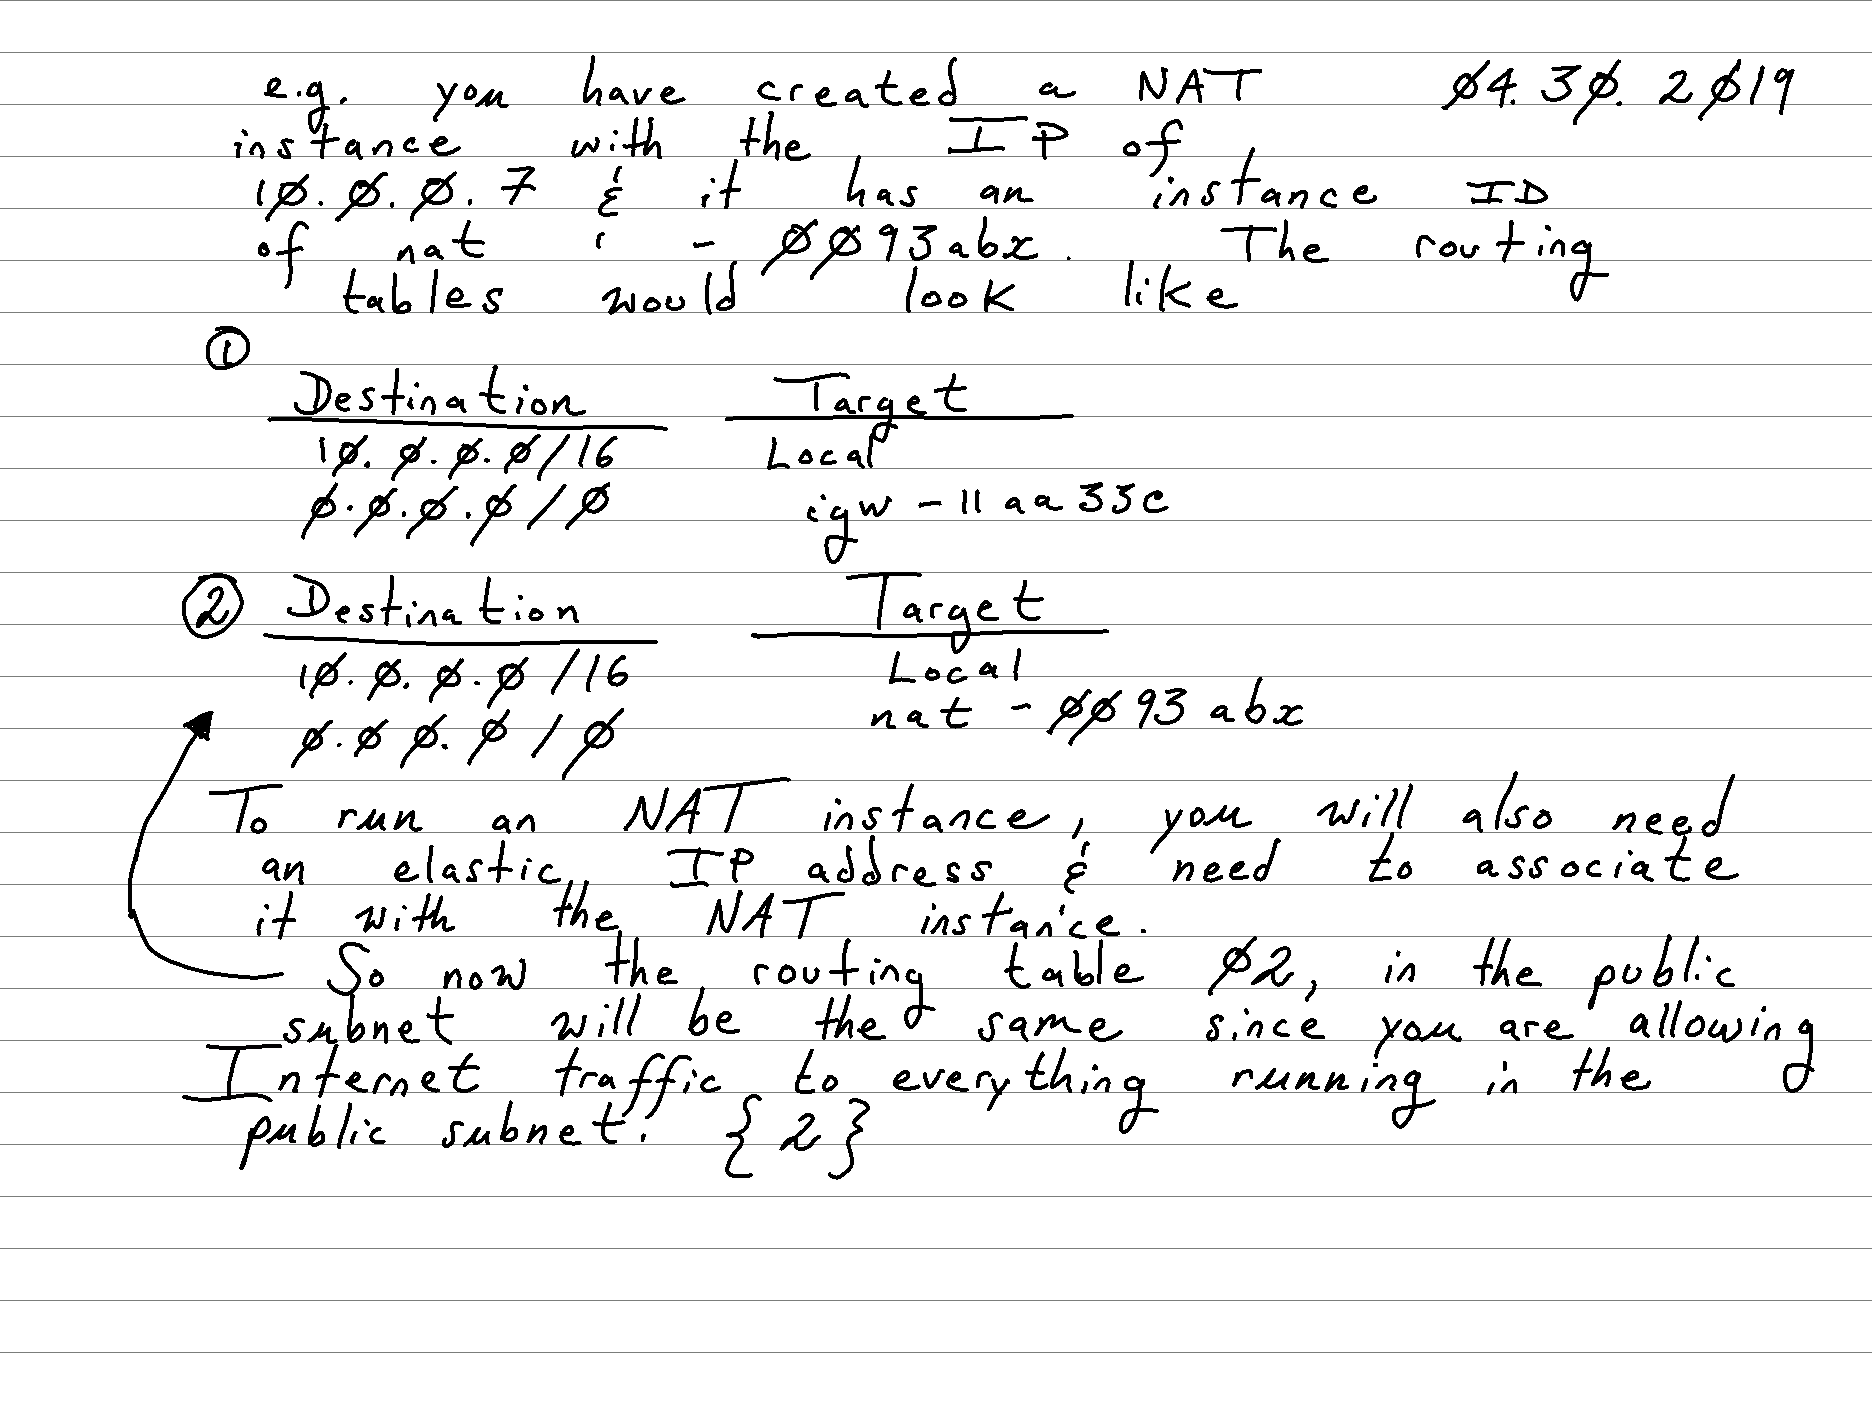 e.g. you have created a NAT 04.30.2019
instance with the IP of
10.0.0.7 & it has an instance ID
of nat - 0093abx. The routing
tables would look like
①
Destination Target
10.0.0.0/16 Local
0.0.0.0/0 igw-11aa33c
② Destination Target
10.0.0.0/16 Local
0.0 0.0/0 nat-0093abx
To run an NAT instance, you will also need
an elastic IP address & need to associate
it with the NAT instance.
So now the routing table 02, in the public
subnet will be the same since you are allowing
Internet traffic to everything running in the
public subnet. {2}